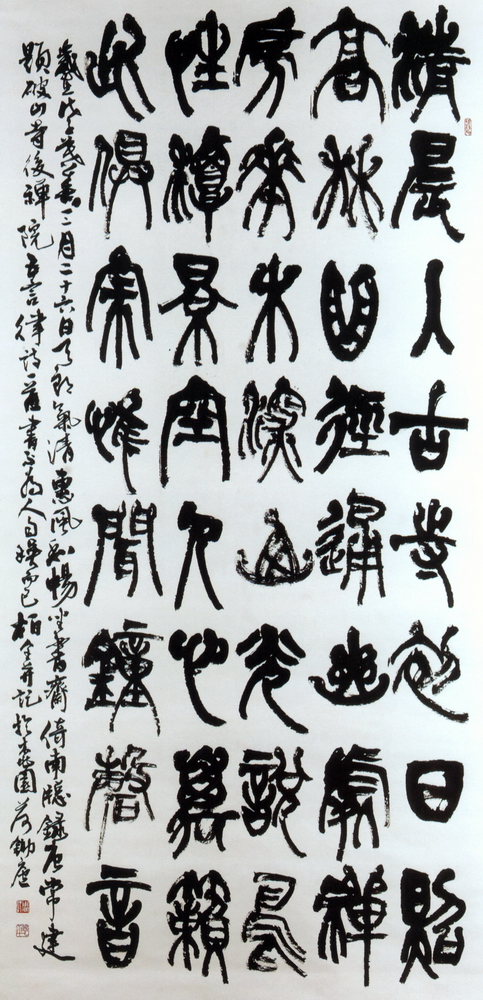 清晨入古寺初日照
高林曲徑通幽處禪
房花木深山光說鳥
性潭景空人心萬籟
此俱寂惟聞鐘磬音
三月二十六日天朗氣清惠風和暢坐書齋倚南牕錄唐常建
題破山寺後禪院五言律詩一舊書不為人自娛而已栢并記於園荷鋤廬